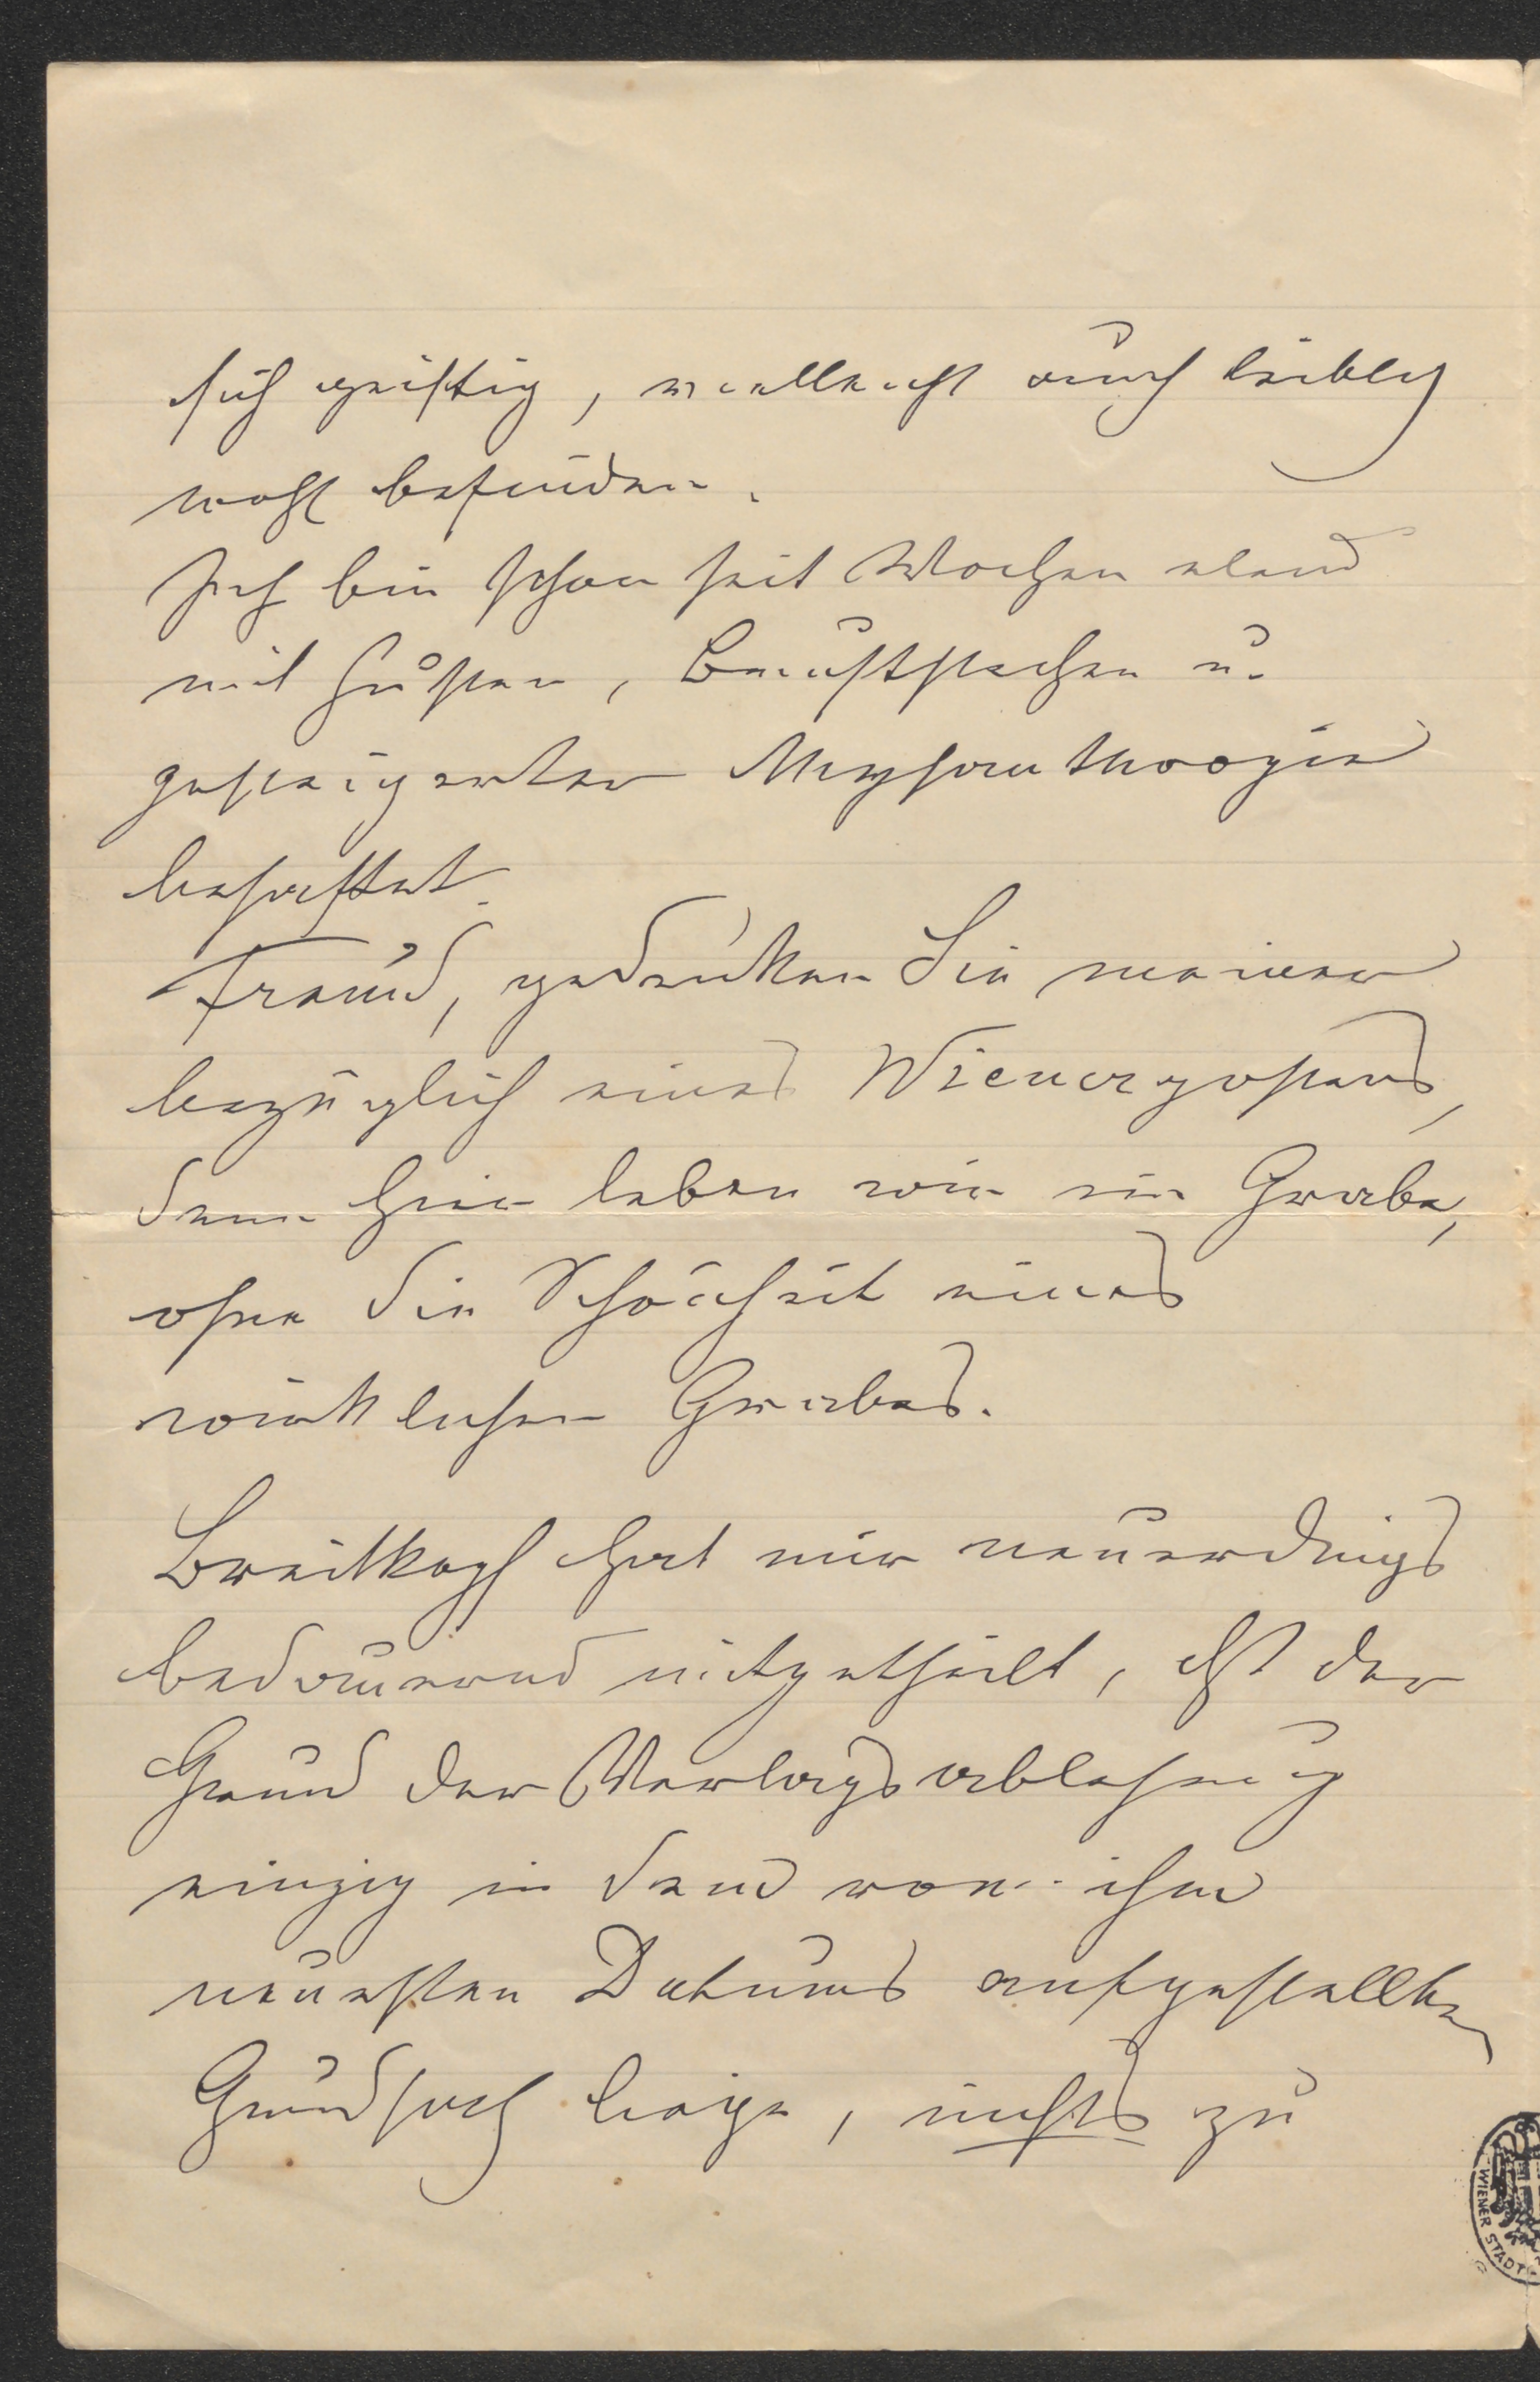 sich geistig, vielleicht auch leiblich
wohl befinden.
Ich bin schon seit Wochen elend
mit Husten, Bruststechen u.
gesteigerter Mysantropie
behaftet.
Freund, gedenken Sie meiner
bezüglich eines Wienerpostens,
denn hier leben wir im Grabe,
ohne die Schönheit eines
wirklichen Grabes.
Breitkopf hat mir neuerdings
bedauernd mitgetheilt, daß der
Grund der Verlagsablehnung
einzig in dem von ihm
neuesten Datums aufgestellten
Grundsatz liege, nichts zu
WIENER STADT